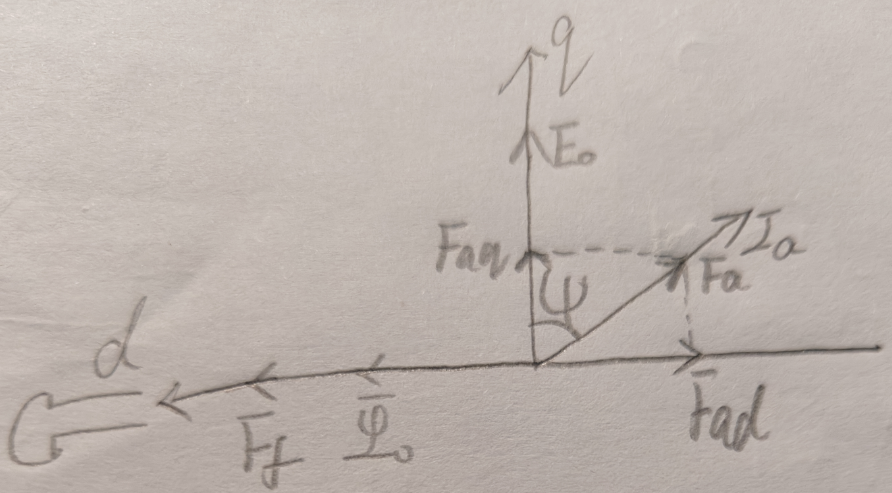 q
E₀
Faq
ψ
Ia
Fa
d
F̄f
Φ̄₀
F̄ad